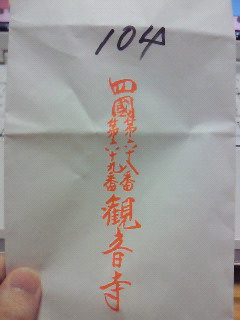 104
四國第六十八番
第六十九番
観音寺